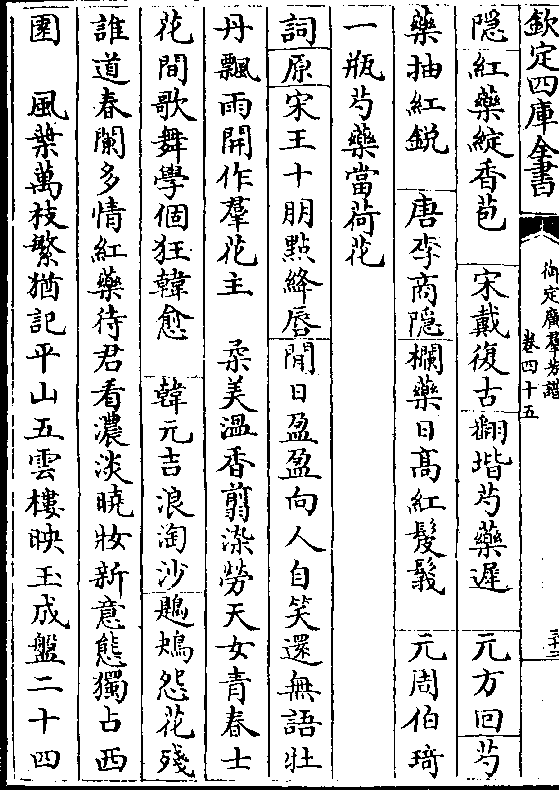 欽定四庫全書
御定廣羣芳譜
卷四十五
隱紅藥綻香苞　宋戴復古翻堦芍藥遲　元方回芍
藥抽紅銳　唐李商隱欄藥日髙紅髲髲　元周伯琦
一瓶芍藥當荷花
詞原宋王十朋點絳唇閒日盈盈向人自笑還無語壯
丹飄雨開作羣花主　柔美溫香翦染勞天女青春士
花間歌舞學個狂韓愈　韓元吉浪淘沙鶗鴂怨花殘
誰道春闌多情紅藥待君看濃淡曉妝新意態獨占西
園　風葉萬枝繁猶記平山五雲樓映玉成盤二十四